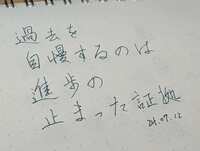 過去を
自慢するのは
進歩の
止まった証拠
21.07.12